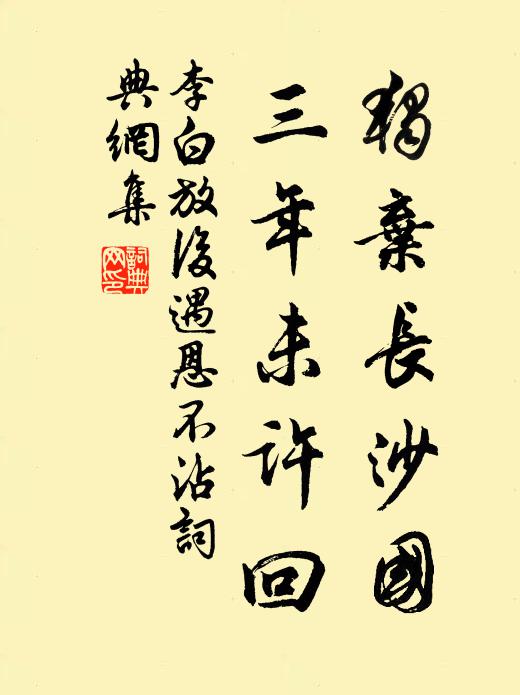 獨棄長沙國
三年未許回
李白放後遇恩不沾詞
典網集
詞典
网印